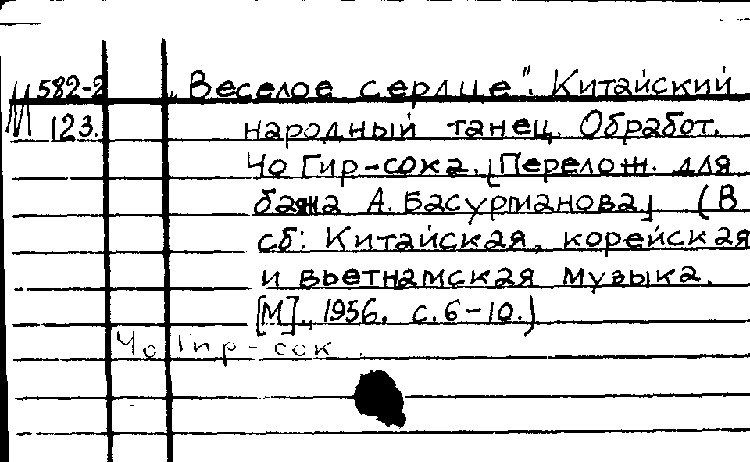 М 582-2 „Веселое сердце". Китайский
123. народный танец. Обработ.
Чо Гир-сока. [Перелож. для
баяна А. Басурманова] (В
сб: Китайская, корейская
и вьетнамская музыка.
[М]., 1956. с. 6-10.)
Чо Гир-сок.